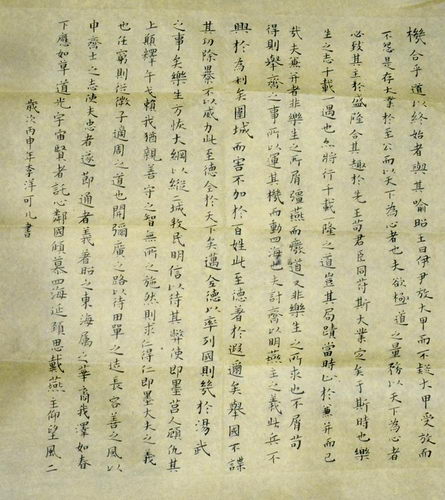 機合乎道以終始者與其喻昭王曰伊尹放大甲而不疑大甲受放而
不怨是存大業於至公而以天下為心者也夫欲極道之量務以天下為心者
必致其主於盛隆合其趣於先王苟君臣同符斯大業定矣于斯時也樂
生之志千載一遇也亦將行千載一隆之道豈其局蹟當時止於兼并而已
哉夫兼并者非樂生之所屑彊燕而廢道又非樂生之所求也不屑苟
得則舉齊之事所以運其機而動四海也夫討齊以明燕主之義此兵不
興於為利矣圍城而害不加於百姓此至德著於遐邇矣舉國不謀
其功除暴不以威力此至德全於天下矣邁全德以率列國則幾於湯武
之事矣樂生方恢大綱以縱二城牧民明信以待其弊使即墨莒人顧仇其
上願釋干戈賴我猶親善守之智無所之施然則求仁得仁即墨大夫之義
也任窮則從微子適周之道也開彌廣之路以待田單之徒長容善之風以
申齊士之志使夫忠者遂節通者義著昭之東海屬之華裔我澤如春
下應如草道光宇宙賢者託心鄰國傾慕四海延頸思戴燕主仰望風二
歲次丙申年李洋可書